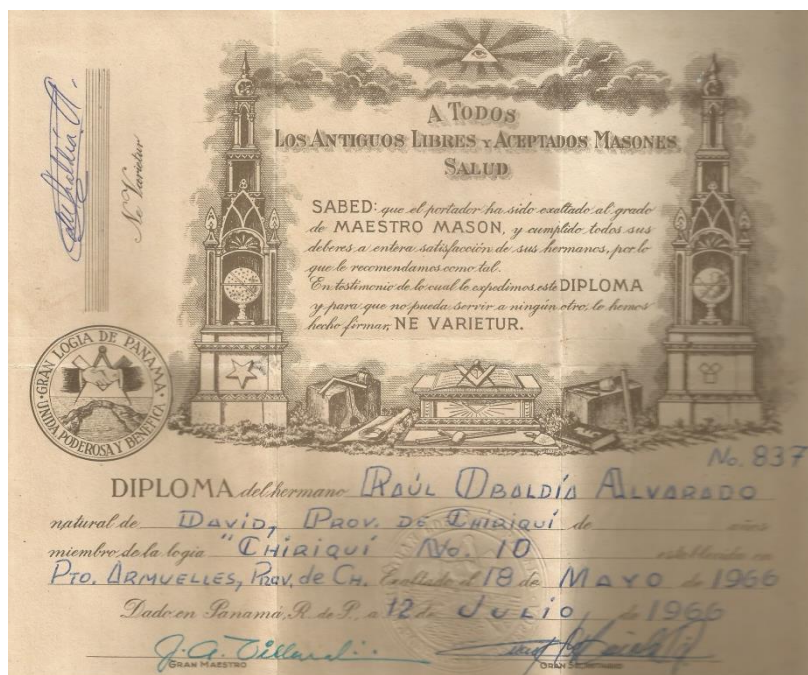 Ne Varietur
A TODOS
LOS ANTIGUOS LIBRES Y ACEPTADOS MASONES
SALUD
SABED: que el portador ha sido exaltado al grado
de MAESTRO MASON, y cumplido todos sus
deberes a entera satisfacción de sus hermanos, por lo
que le recomendamos como tal.
En testimonio de lo cual le expedimos este DIPLOMA
y para que no pueda servir a ningún otro, lo hemos
hecho firmar, NE VARIETUR.
GRAN LOGIA DE PANAMA
UNIDA PODEROSA Y BENEFICA
No. 837
DIPLOMA del hermano RAÚL OBALDÍA ALVARADO
natural de DAVID, PROV. DE CHIRIQUÍ de años
miembro de la logia "CHIRIQUÍ No. 10 establecida en
PTO. ARMUELLES, PROV. de CH. Exaltado el 18 de MAYO de 1966
Dado en Panamá, R. de P., a 12 de JULIO de 1966
GRAN MAESTRO GRAN SECRETARIO